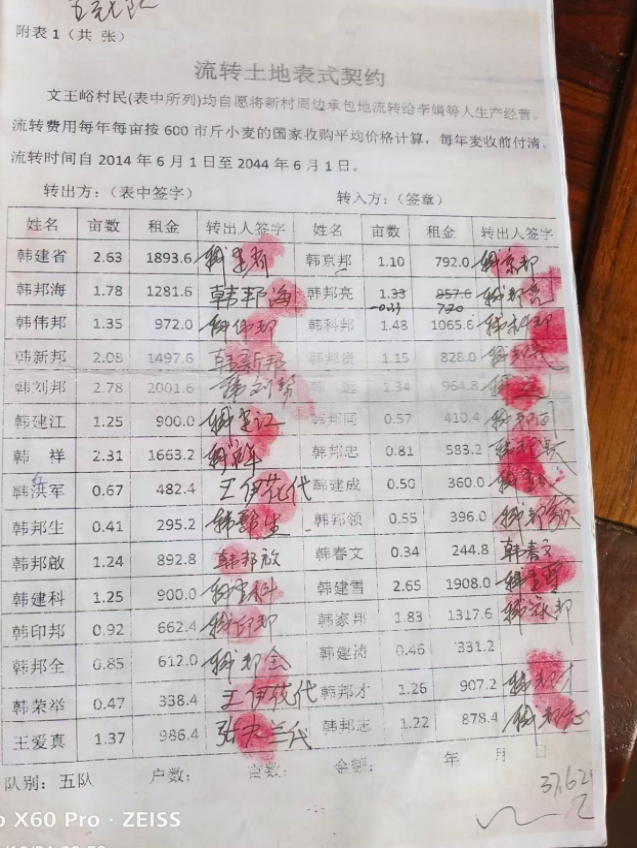 五组队
附表1（共 张）
流转土地表式契约
文王峪村民(表中所列)均自愿将新村周边承包地流转给李娟等人生产经营。
流转费用每年每亩按 600 市斤小麦的国家收购平均价格计算，每年麦收前付清。
流转时间自 2014 年 6 月 1 日至 2044 年 6 月 1 日。
转出方：（表中签字） 转入方：（签章）
姓名 亩数 租金 转出人签字 姓名 亩数 租金 转出人签字
韩建省 2.63 1893.6 韩建省 韩京邦 1.10 792.0 韩京邦
韩邦海 1.78 1281.6 韩邦海 韩邦亮 1.33 957.6 韩邦亮
-0.33 720
韩伟邦 1.35 972.0 韩伟邦 韩科邦 1.48 1065.6 韩科邦
韩新邦 2.08 1497.6 韩新邦 韩邦贵 1.15 828.0
韩刘邦 2.78 2001.6 韩刘邦 韩 远 1.34 964.8
韩建江 1.25 900.0 韩建江 韩邦同 0.57 410.4 韩邦同
韩 祥 2.31 1663.2 韩祥 韩邦忠 0.81 583.2
韩洪军 0.67 482.4 王伊花代 韩建成 0.50 360.0
韩邦生 0.41 295.2 韩邦生 韩邦领 0.55 396.0 韩邦领
韩邦啟 1.24 892.8 韩邦放 韩春文 0.34 244.8 韩春文
韩建科 1.25 900.0 韩建科 韩建雪 2.65 1908.0 韩建雪
韩印邦 0.92 662.4 韩印邦 韩家邦 1.83 1317.6 韩家邦
韩邦全 0.85 612.0 韩邦全 韩建涛 0.46 331.2
韩荣举 0.47 338.4 王伊花代 韩邦才 1.26 907.2 韩邦才
王爱真 1.37 986.4 张夫兰代 韩邦志 1.22 878.4 韩邦志
队别：五队 户数： 亩数： 金额： 年 月 日
X60 Pro · ZEISS